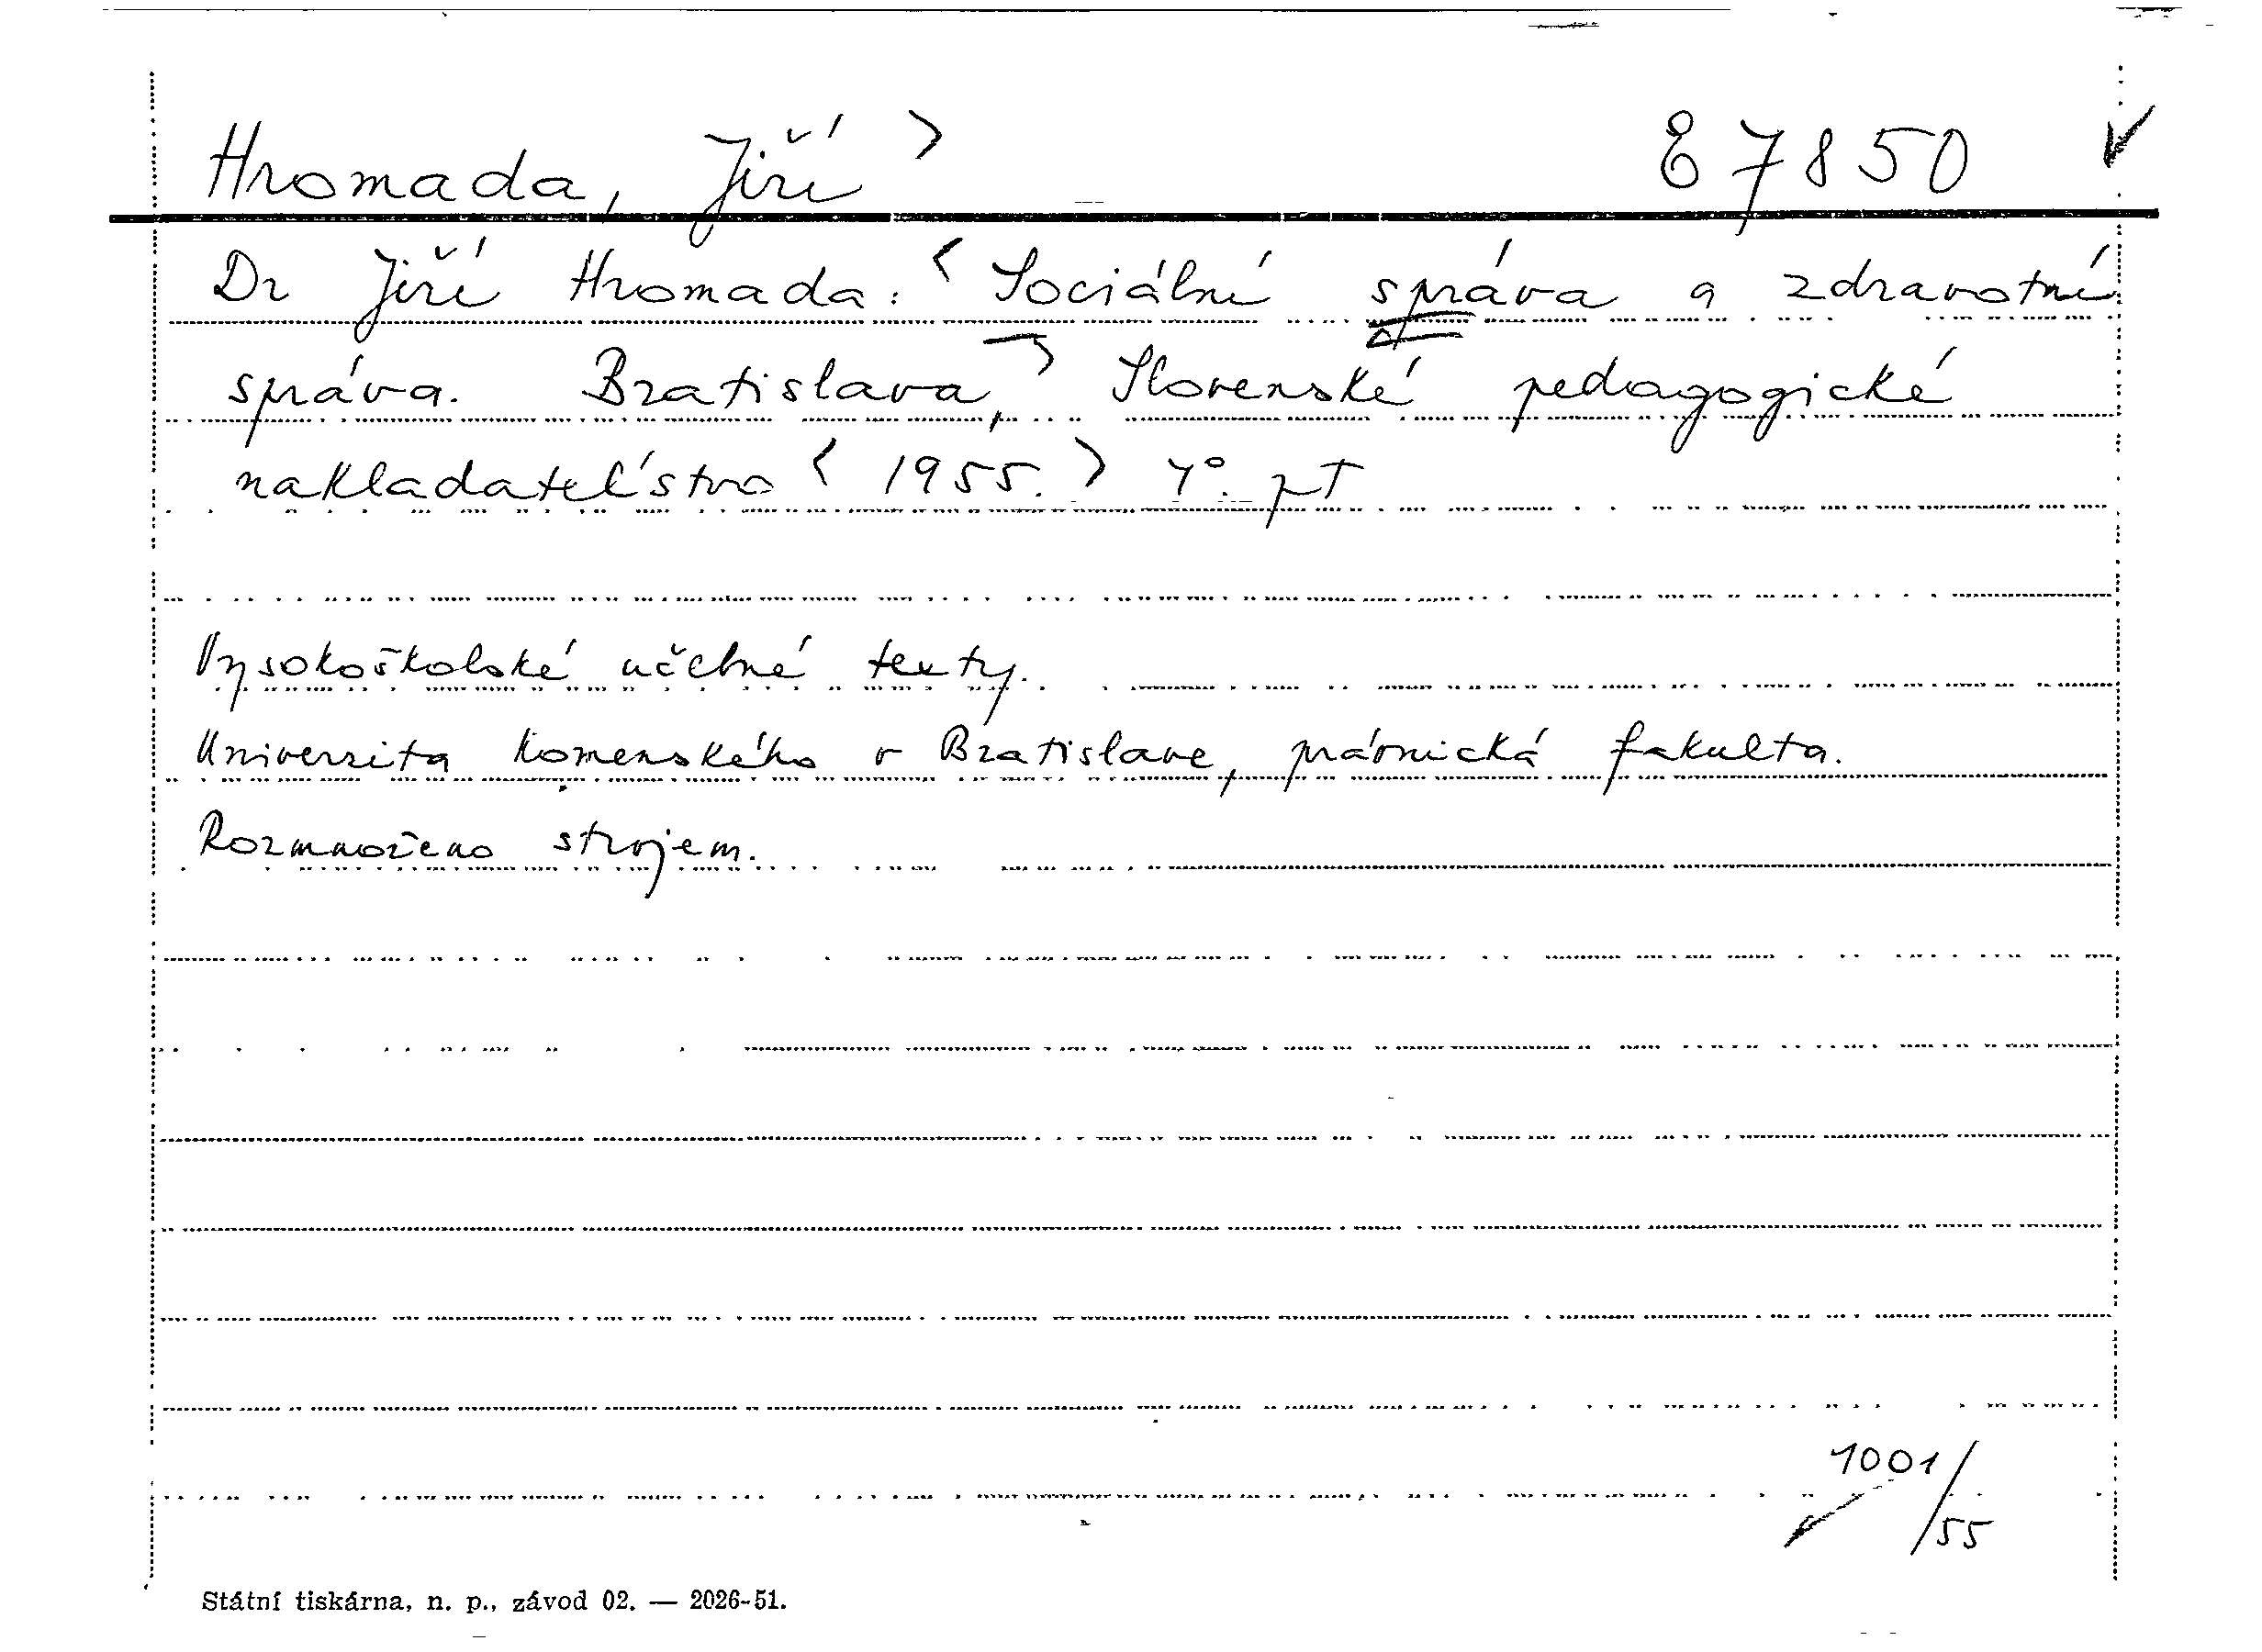 Hromada, Jiří > E 7850
Dr Jiří Hromada: < Sociální správa a zdravotní
správa. Bratislava, > Slovenské pedagogické
nakladateľstvo < 1955. > 4°.
Vysokoškolské učebné texty.
Universita Komenského v Bratislave, právnická fakulta.
Rozmnoženo strojem.
1001/
55
Státní tiskárna, n. p., závod 02. — 2026-51.